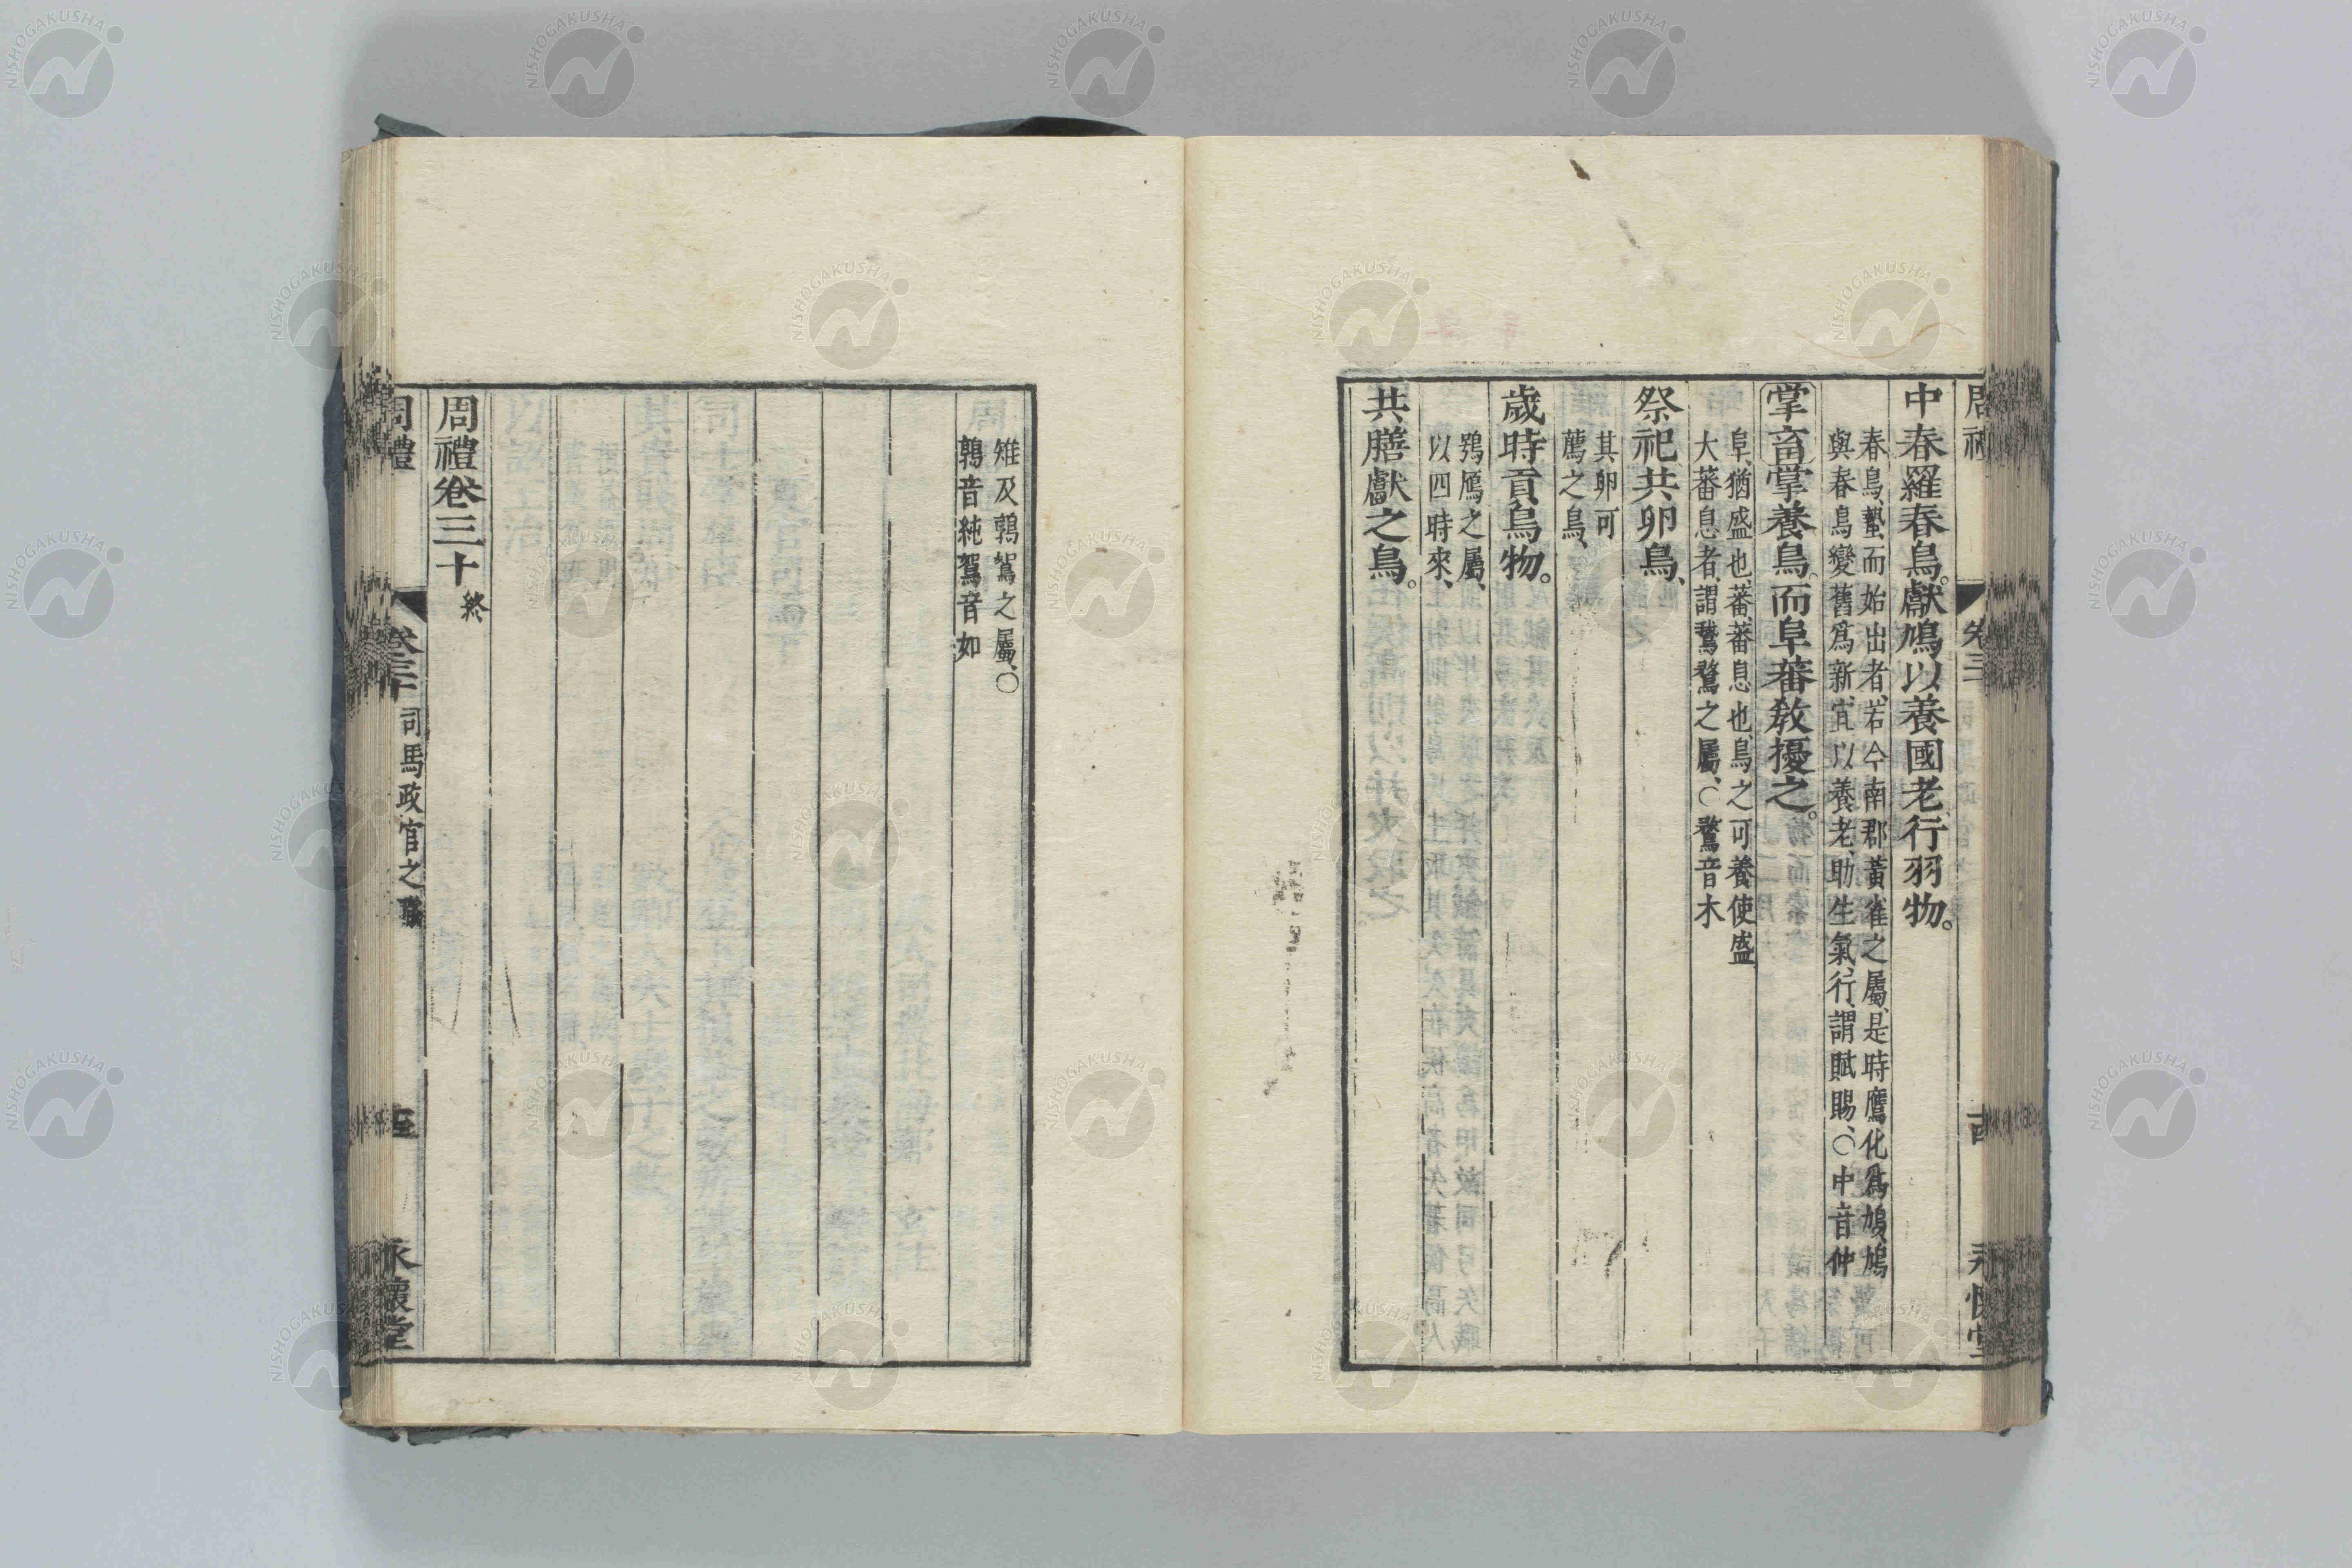 中春羅春鳥。獻鳩以養國老、行羽物。
春鳥、蟄而始出者、若今南郡黃雀之屬、是時鷹化爲鳩、鳩
與春鳥變舊爲新、宜以養老、助生氣、行、謂賦賜、○中音仲
掌畜掌養鳥。而阜蕃敎擾之。
阜、猶盛也、蕃、蕃息也、鳥之可養使盛
大蕃息者、謂鵞鶩之屬、○鶩音木
祭祀共卵鳥、
其卵可
薦之鳥、
歲時貢鳥物。
鴈之屬、
以四時來、
共膳獻之鳥。
雉及鶉鴽之屬、○
鶉音純鴽音如
周禮卷三十 終
周禮
卷三十
司馬政官之職
永懷堂
NISHOGAKUSHA